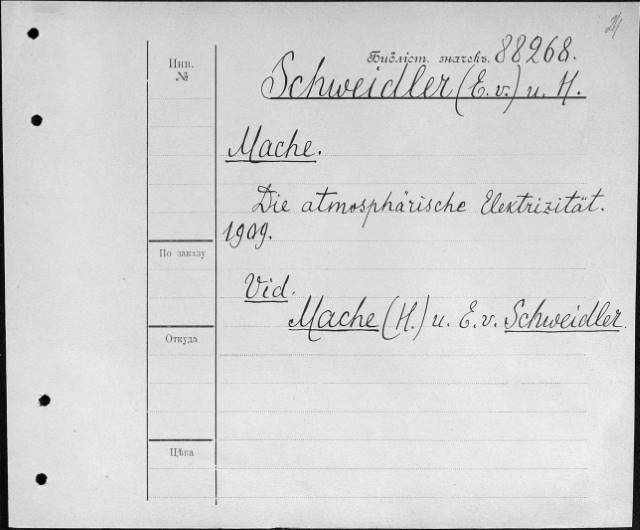 Библіот. значекъ. 88268.
Инн.
№
Schweidler, (E. v.) u. H.
Mache.
Die atmosphärische Elektrizität.
1909.
По заказу
Vid.
Mache (H.) u. E. v. Schweidler.
Откуда
Цѣна